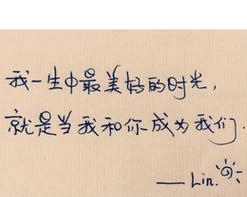 我一生中最美好的时光，
就是当我和你成为我们.
—— Lin.